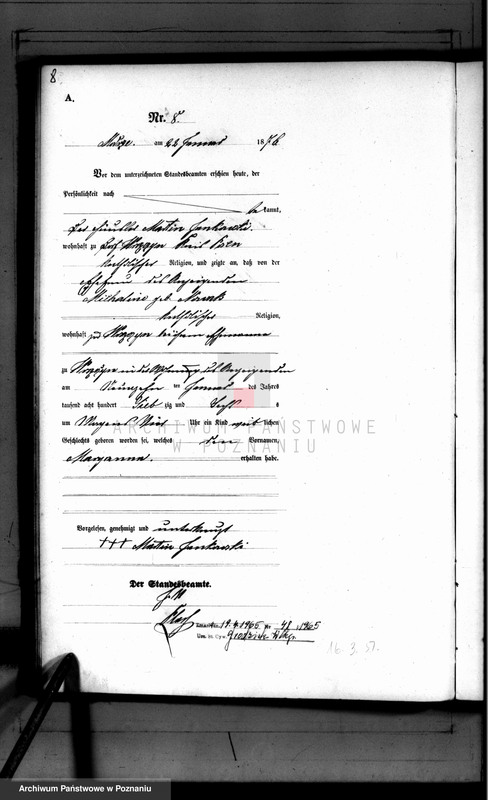 8
A.
Nr. 8.
am 22 Januar 1876
Vor dem unterzeichneten Standesbeamten erschien heute, der
Persönlichkeit nach
be kannt,
Der Martin Jankowski,
wohnhaft zu Dorf Kreis Posen
katholischer Religion, und zeigte an, daß von der
Ehefrau des Anzeigenden
Michalina geb. Nowak
katholischer Religion,
wohnhaft zu bei ihrem Ehemanne
zu in der Wohnung des Anzeigenden
am Neunzehn ten Januar des Jahres
tausend acht hundert Sieb zig und Sechs
um Morgens Uhr ein Kind weib lichen
Geschlechts geboren worden sei, welches den Vornamen,
Maryanna. erhalten habe.
Vorgelesen, genehmigt und unterkreuzt
+++ Martin Jankowski
Der Standesbeamte.
19. 1965 48 1965
16. 3. 57.
ARCHIWUM PAŃSTWOWE
W POZNANIU
Archiwum Państwowe w Poznaniu